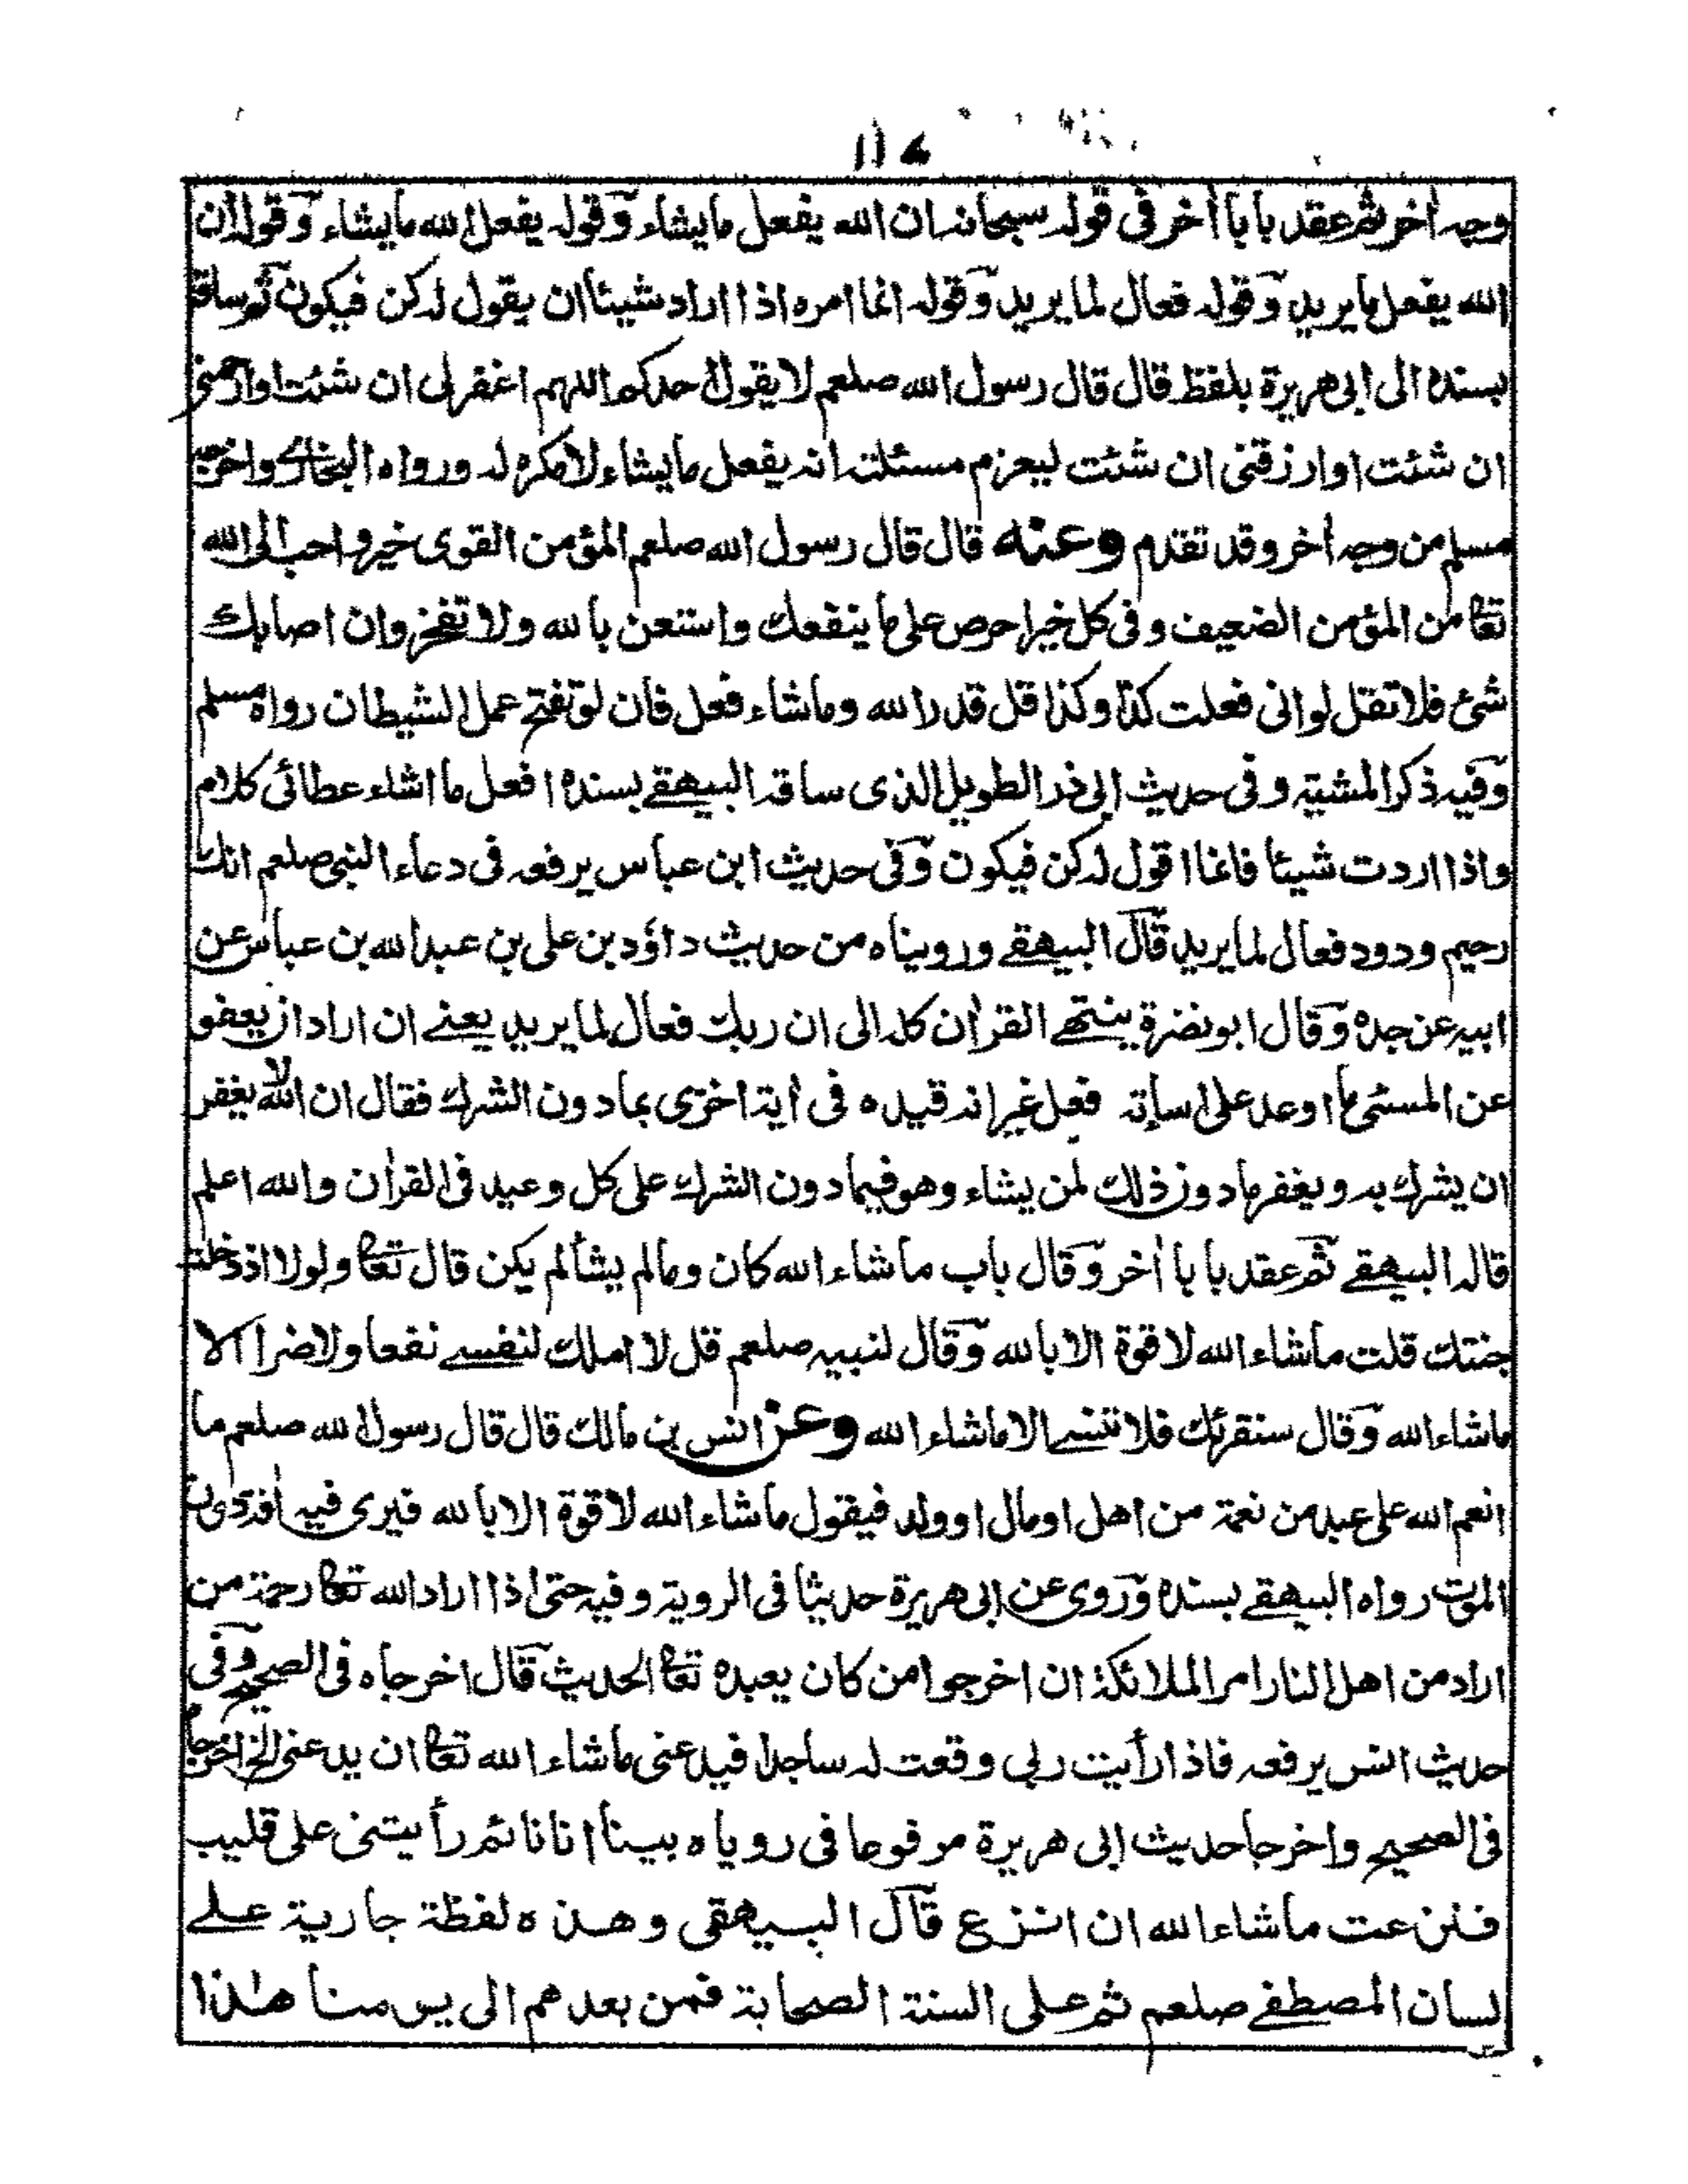 ١١٤
وجه أخر ثم عقد بابا أخر فى قوله سبحانه ان الله يفعل ما يشاء وقوله يفعل الله ما يشاء وقوله ان
الله يفعل ما يريد وقوله فعال لما يريد وقوله انما امره اذا اراد شيئا ان يقول له كن فيكون ثم ساق
بسنده الى ابى هريرة بلفظ قال قال رسول الله صلعم لا يقول احدكم اللهم اغفر لى ان شئت او ارحمنى
ان شئت او ارزقنى ان شئت ليعزم مسئلته انه يفعل ما يشاء لا مكره له ورواه البخارى واخرجه
مسلم من وجه أخر وقد تقدم وعنه قال قال رسول الله صلعم المؤمن القوى خير واحب الى الله
تعا من المؤمن الضعيف وفى كل خير احرص على ما ينفعك واستعن بالله ولا تعجز وان اصابك
شئ فلا تقل لو انى فعلت كذا وكذا قل قدر الله وما شاء فعل فان لو تفتح عمل الشيطان رواه مسلم
وفيه ذكر المشية وفى حديث ابى ذر الطويل الذى ساقه البيهقے بسنده افعل ما اشاء عطائى كلام
واذا اردت شيئا فانما اقول له كن فيكون وفى حديث ابن عباس يرفعه فى دعاء النبى صلعم انك
رحيم ودود فعال لما يريد قال البيهقے وروينا ه من حديث داؤد بن على بن عبد الله بن عباس عن
ابيه عن جده وقال ابو نضرة ينتهے القرأن كله الى ان ربك فعال لما يريد يعنے ان اراد ان يعفو
عن المسئى ما اوعد على اسأته فعل غير انه قيده فى أية اخرى بما دون الشرك فقال ان الله لا يغفر
ان يشرك به ويغفر ما دون ذلك لمن يشاء وهو فيما دون الشرك على كل وعيد فى القرأن والله اعلم
قاله البيهقے ثم عقد بابا أخر وقال باب ما شاء الله كان وما لم يشأ لم يكن قال تعا ولولا اذ دخلت
جنتك قلت ما شاء الله لا قوة الا بالله وقال لنبيه صلعم قل لا املك لنفسے نفعا ولا ضرا الا
ما شاء الله وقال سنقرئك فلا تنسے الا ما شاء الله وعن انس بن مالك قال قال رسول الله صلعم ما
انعم الله على عبد من نعمة من اهل او مال او ولد فيقول ما شاء الله لا قوة الا بالله فيرى فيه أفة دون
الموت رواه البيهقے بسنده وروى عن ابى هريرة حديثا فى الروية وفيه حتى اذا اراد الله تعا رحمة من
اراد من اهل النار امر الملائكة ان اخرجوا من كان يعبده تعا الحديث قال اخرجاه فى الصحيح وفى
حديث انس يرفعه فاذا رأيت ربى وقعت له ساجدا فيدعنى ما شاء الله تعا ان يدعنى الخ اخرجاه
فى الصحيح واخرجا حديث ابى هريرة مرفوعا فى روياه بينا انا نائم رأيتنى على قليب
فنزعت ما شاء الله ان انزع قال البيهقى وهذه لفظة جارية علے
لسان المصطفے صلعم ثم على السنة الصحابة فمن بعدهم الى يومنا هذا